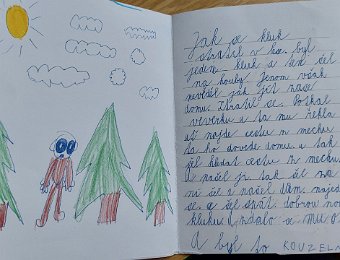 Jak se kluk
ztratil v lese. byl
jeden kluk a ten šel
na houby. Jenom však
nevěděl jak jet nase
domu. Ztratil se. Potkal
veverku a ta mu řekla
ať najde cestu z mechu
ta ho dovede domu. a tak
šel hledat cestu z mechu
a našel ji. tak šel na
ní šel a našel dům. najed
se a šel spát. dobrou noc
kluku, zdálo se mu o
A byl to KOUZELN